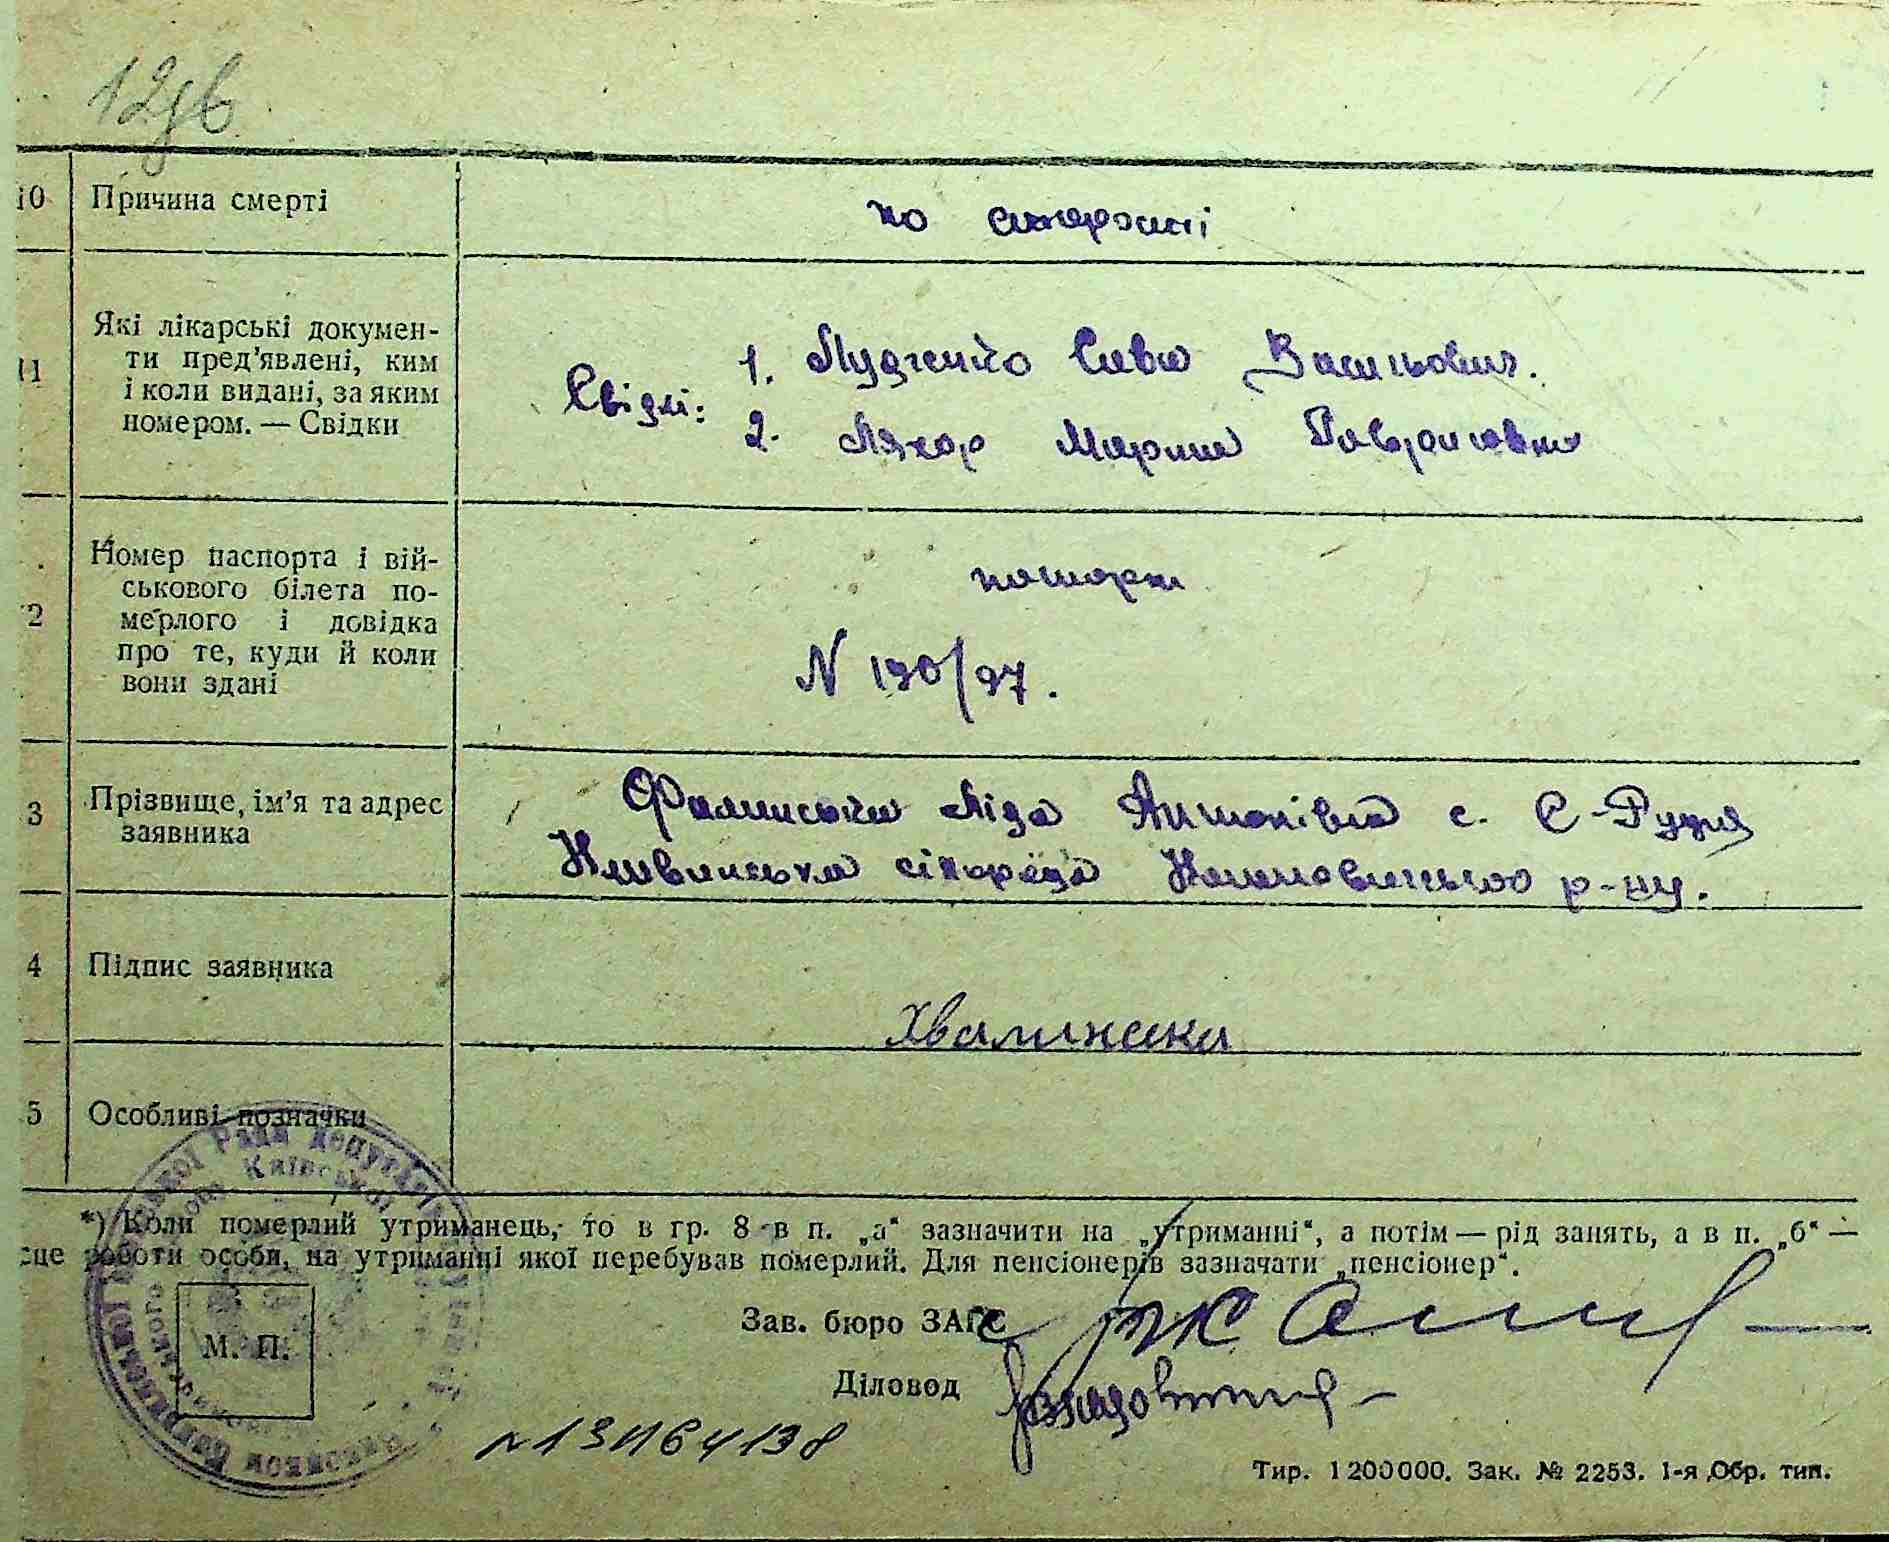 10 Причина смерті
по старості
11 Які лікарські докумен-
ти пред'явлені, ким
і коли видані, за яким
номером. — Свідки
Свідкі:
1. Луценко Сава Васильович.
2. Ляхор Марина Гаврилівна
2 Номер паспорта і вій-
ськового білета по-
мерлого і довідка
про те, куди й коли
вони здані
пашорт
N 190/97.
3 Прізвище, ім'я та адрес
заявника
Фалинська Ліда Антонівна с. С-Рудня
сільрада р-ну.
4 Підпис заявника
Хвалинска
5 Особливі позначки
*) Коли померлий утриманець, то в гр. 8 в п. „а“ зазначити на „утриманні“, а потім — рід занять, а в п. „б“ —
сце роботи особи, на утриманні якої перебував померлий. Для пенсіонерів зазначати „пенсіонер“.
М. П.
Зав. бюро ЗАГС
Діловод
Тир. 1200000. Зак. № 2253. 1-я Обр. тип.